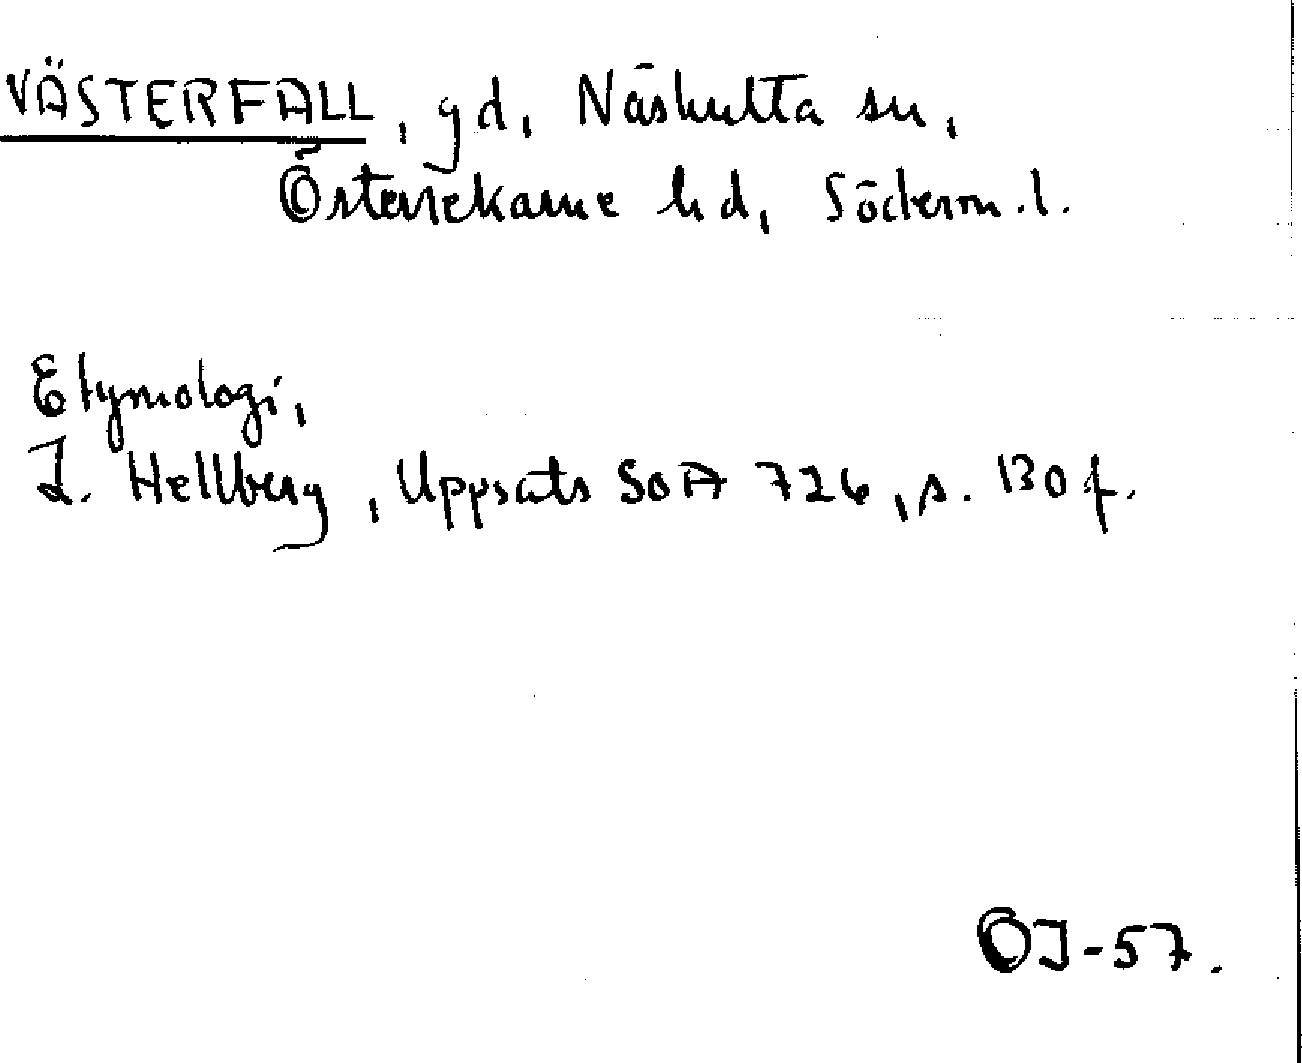 VÄSTERFALL, gd, Näshulta sn,
Österrekarne hd, Söderm.l.
Etymologi,
L. Hellberg, Uppsats SOA 726, s. 130 f.
OJ-57.